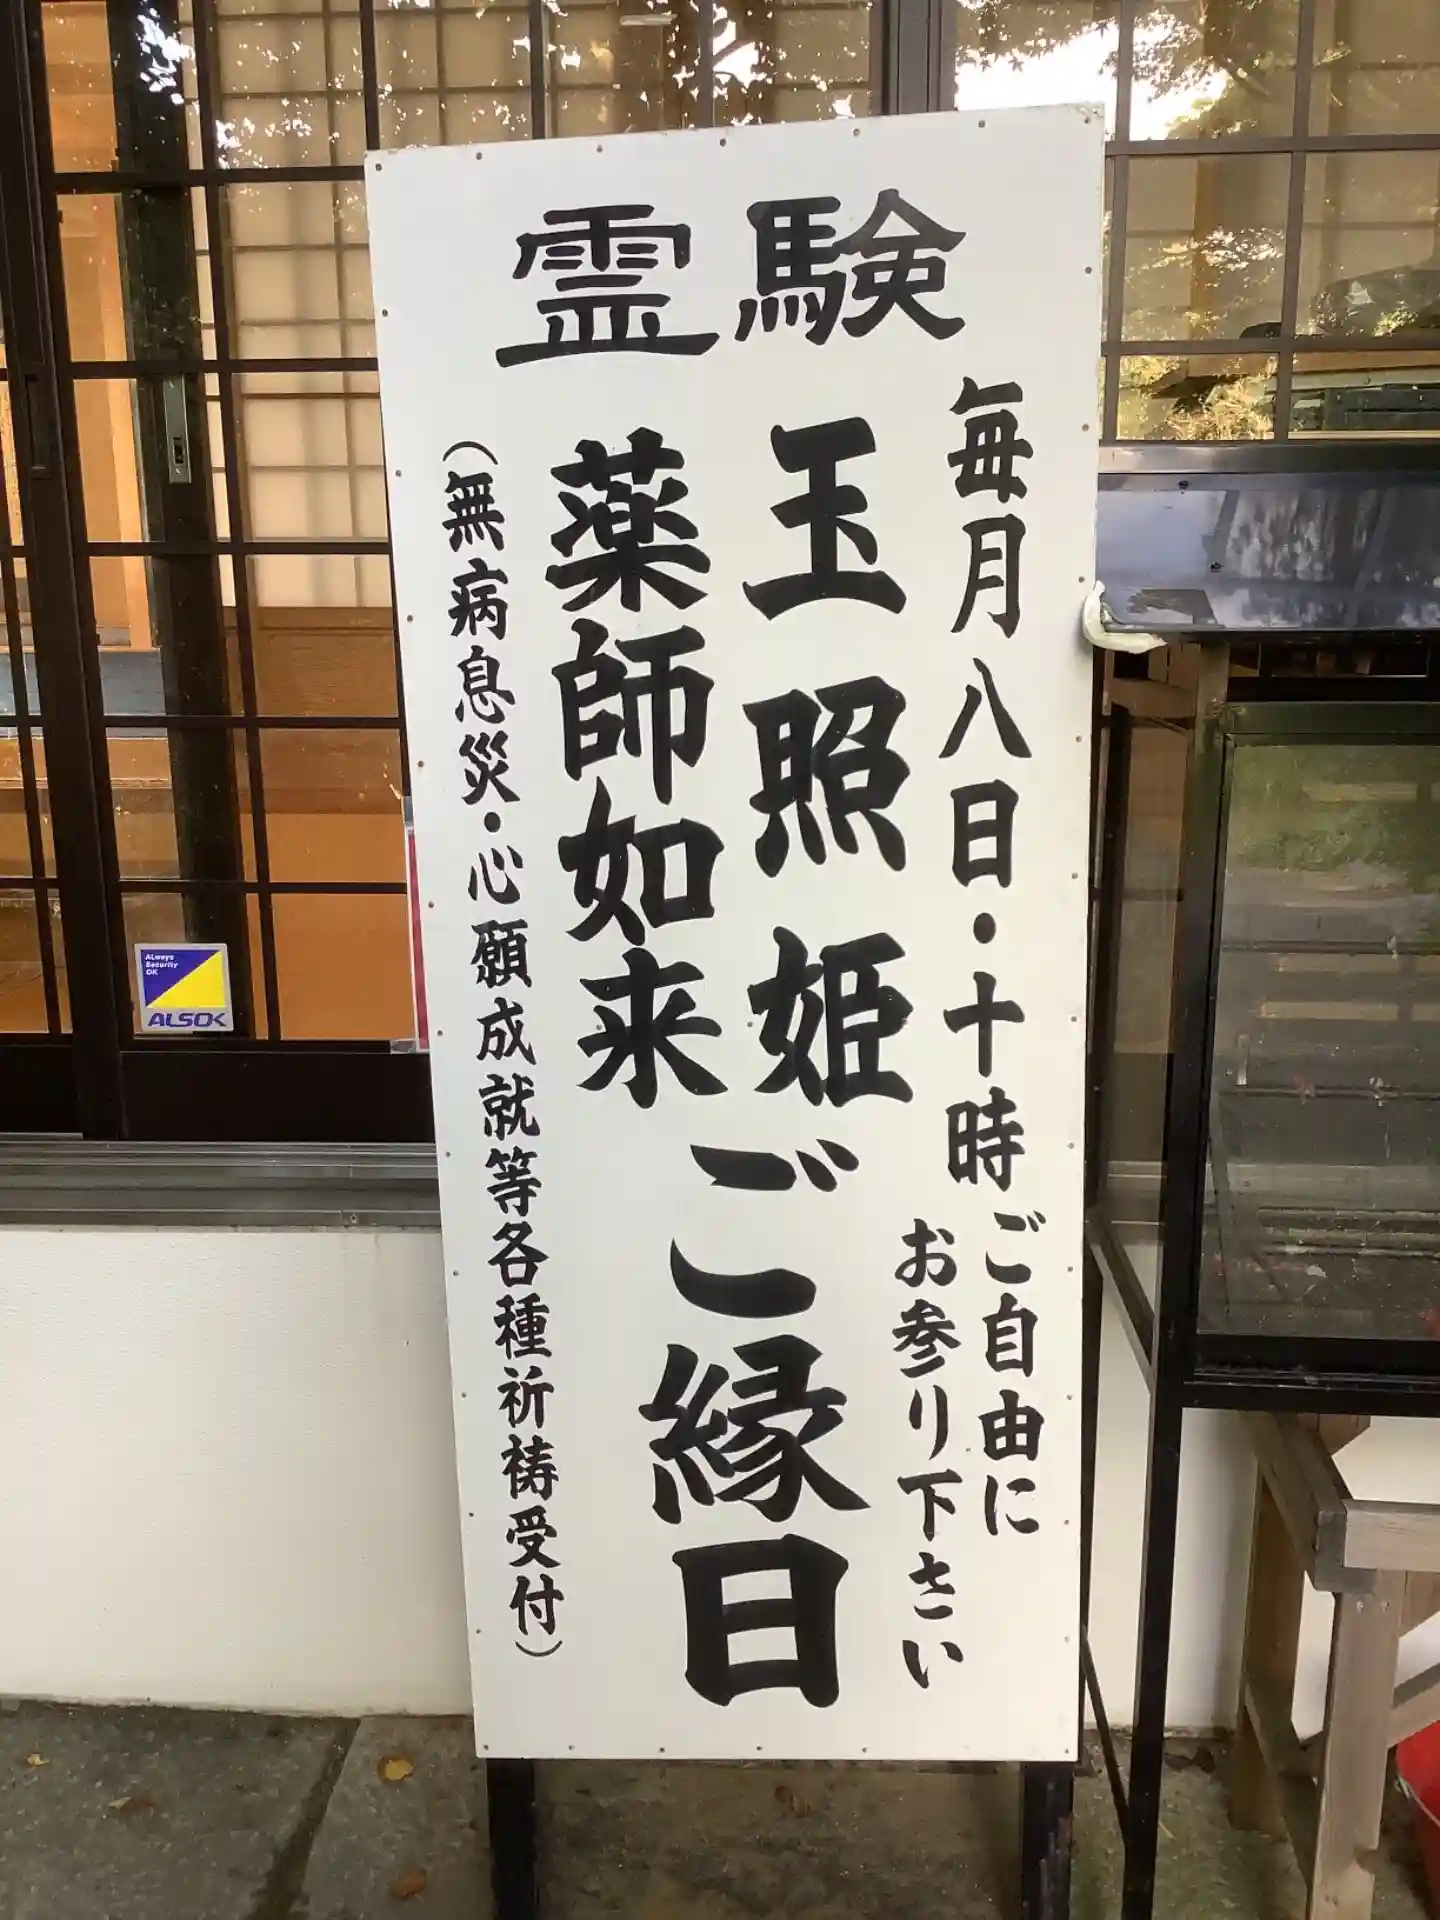 霊験
毎月八日・十時
ご自由に
お参り下さい
玉照姫
薬師如来
ご縁日
(無病息災・心願成就等各種祈祷受付)
ALways
Security
OK
ALSOK